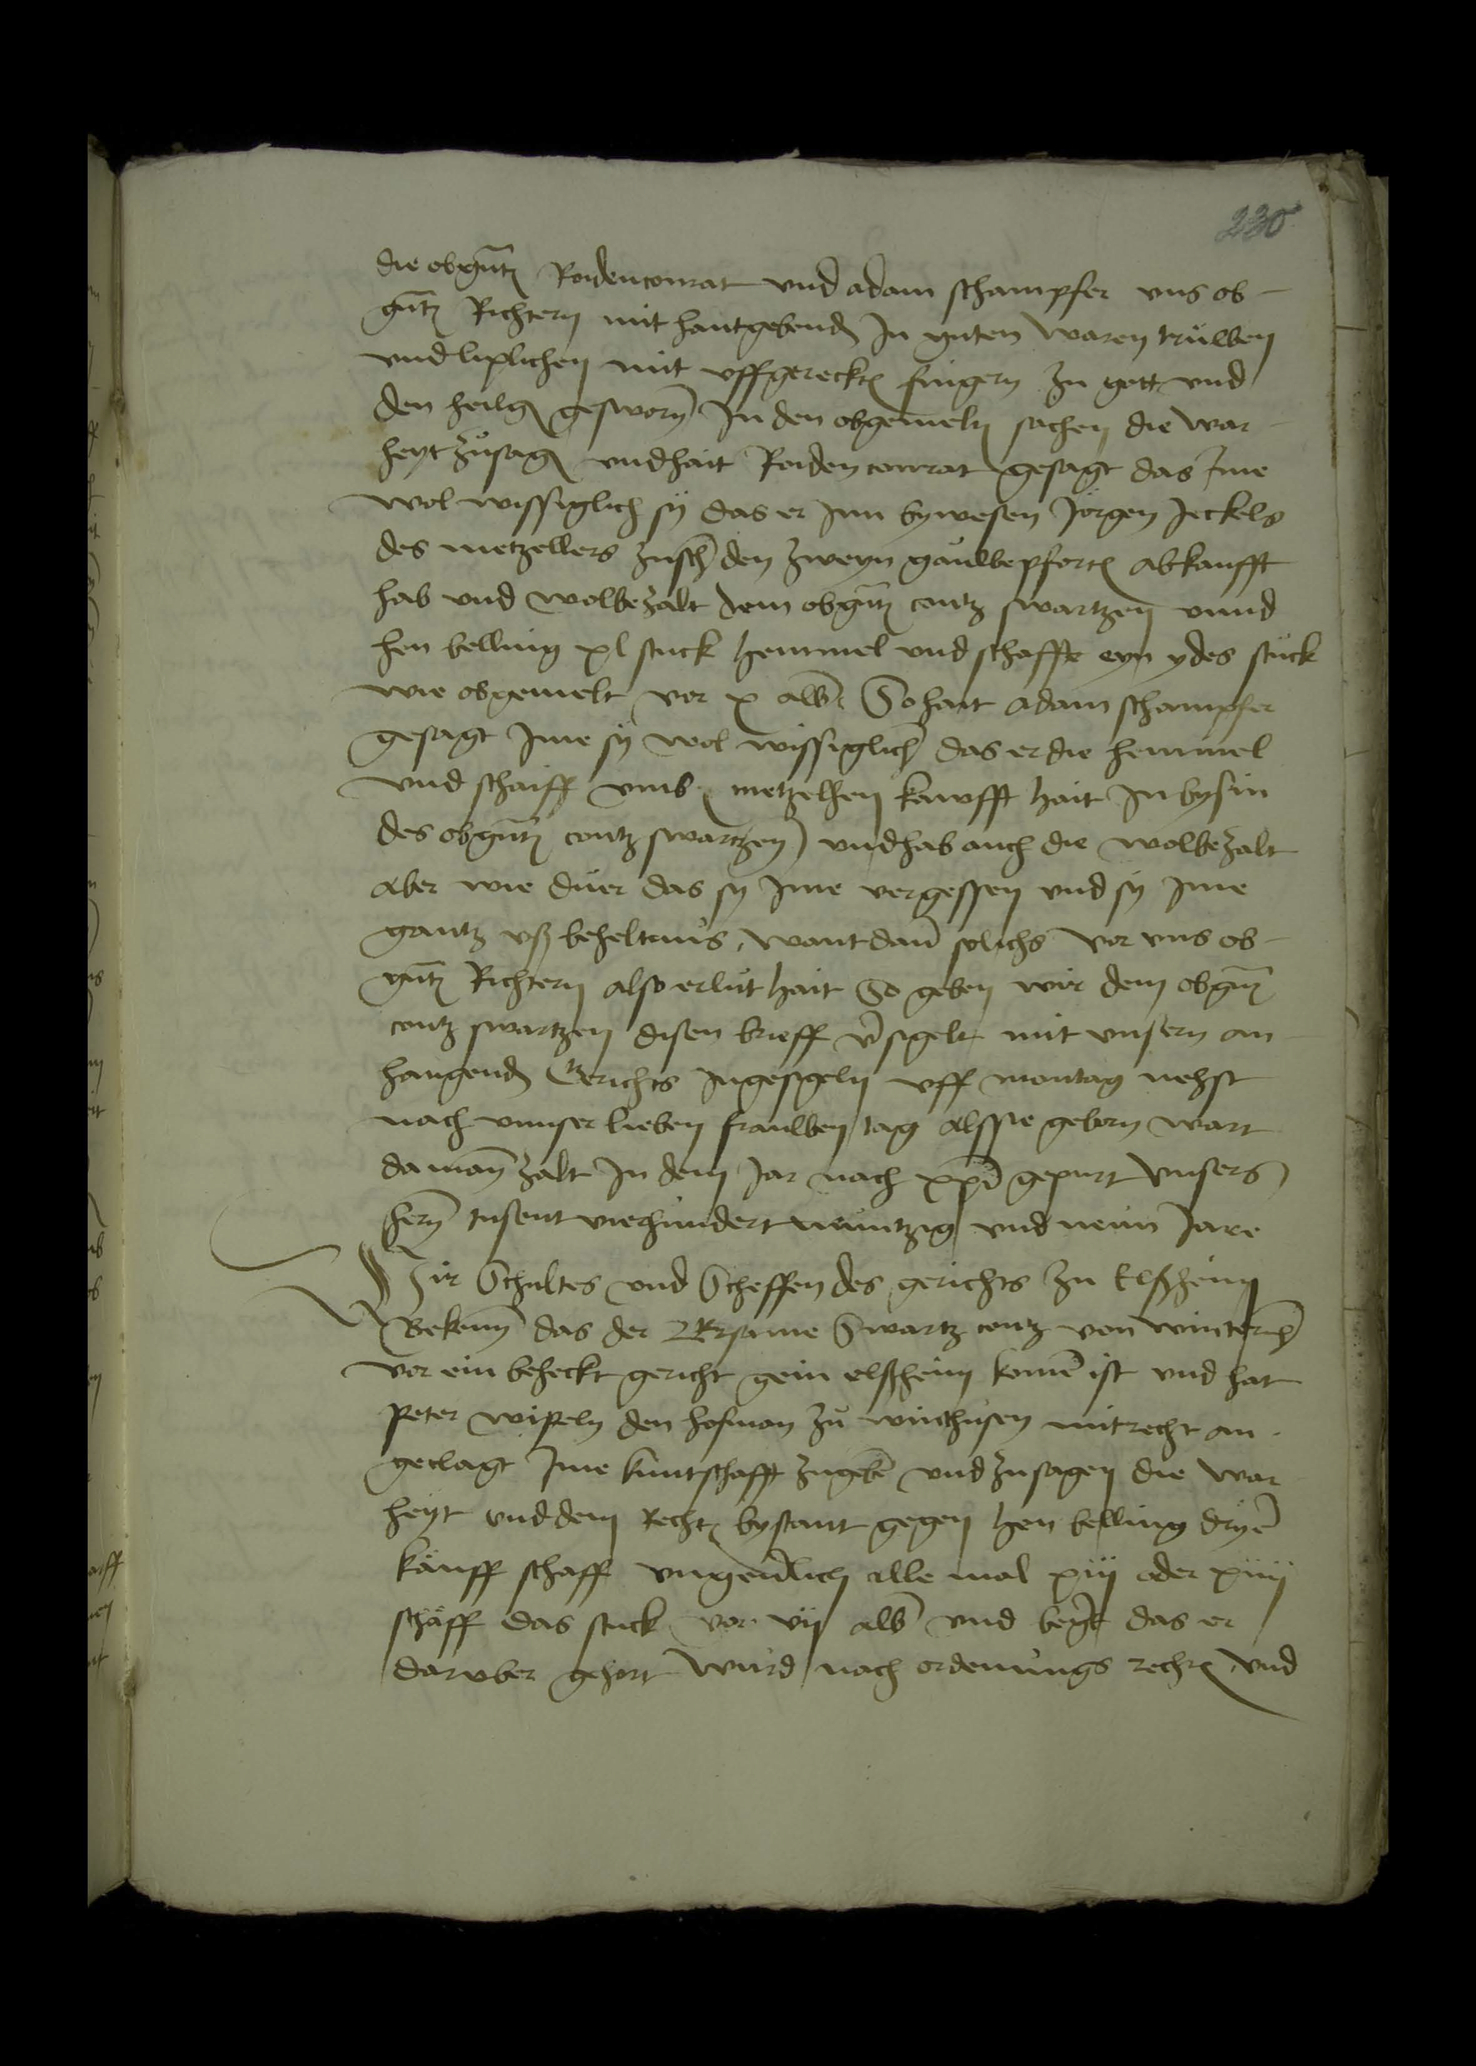 230
die obgn̄t(en) Roidenconrat und adam schampfer uns ob-
gn̄t(en) Richtern mit hantgebend(en) In guten waren truwen
und liplichen mit uffgereckt(en) fingern zu gott und
den heilg(en) gesworn In den obgemeltn sachen die war-
heyt zusag(en) und hait Roidenconrat gesagt das Ime
wol wissiglich sÿ das er Inn bywesen Jorgen Jeckels
des metzellers zusch(en) den zweyn gauwepfort(en) abkaufft
hab und wolbezalt dem obgn̄t(en) contz swartzen unnd
hen belling xl stuck hemmel und schaffe eyn ydes stuck
wie obgemelt vor x alb(us) So hait adam schampfer
gesagt Ime sÿ wol wissiglich das er die hemmel
und schaiff umb metzelhen kauwfft hait In bysin
des obgn̄t(en) contz swartzen und hab auch die wolbezalt
aber wie duer das sy Ime vergessen und sÿ Ime
gantz uß beheltnus, want dan solichs vor uns ob-
gn̄t(en) Richtern also erlut hait So geben wir dem obgn̄t(en)
contz swartzen disen brieff v(er)sigelt mit unsern an-
hangend(en) Gerichts Ingesigeln uff montag nehst
nach unnser lieben frauwen tag alssie geborn wart
da man zalt In dem Jar nach xp̄i gepurt unsers
hern tusent vierhundert nuntzig und neun Jare
Wir Schultes und Scheffen des gerichts zu Elßheim
Bekenn(en) das der Ersame Swartz contz von wintern(heim)
vor ein beheckt gericht gein elßheim kom(en) ist und hat
peter wißeln den hofman zu winthusen mit recht an-
geclagt Ime kuntschafft zugeb(en) und zusagen die war-
heyt und dem Recht(en) bystant gegen hen belling drye(n)
käuff schaff ungeu(er)lich alle mal xiij oder xiiij
schäff das stuck vor vij alb(us) und beg(er)t das er
daruber gehort wurd nach ordenungs recht(en) und